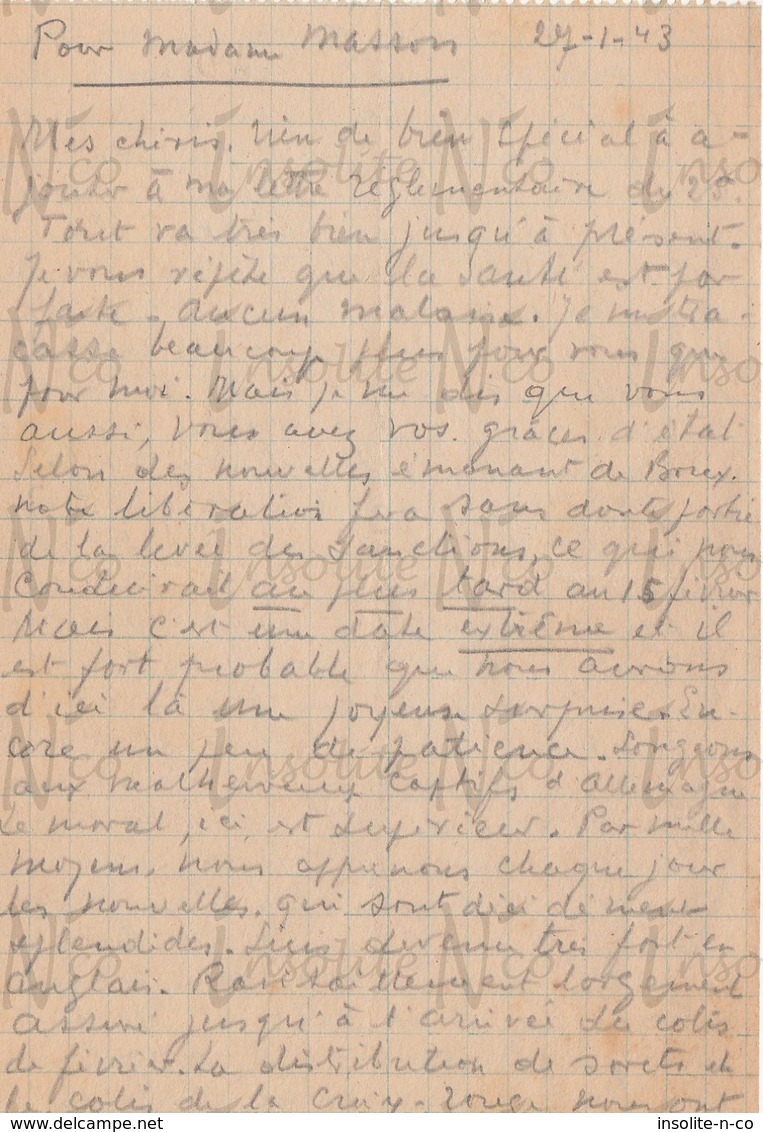 Pour Madame Masson 27-1-43
Mes chéris. Rien de bien spécial à a-
jouter à ma lettre réglementaire du 25.
Tout va très bien jusqu'à présent.
Je vous répète que la santé est par
faite. Aucun malaise. Je me tra-
casse beaucoup plus pour vous que
pour moi. Mais je me dis que vous
aussi, vous avez vos grâces d'état
Selon des nouvelles émanant de Brux.
notre libération fera sans doute partie
de la levée des sanctions, ce qui nous
conduirait au plus tard au 15 février
Mais c'est une date extrême et il
est fort probable que nous aurons
d'ici là une joyeuse surprise. En-
core un peu de patience. Songeons
aux malheureux captifs d'Allemagne
Le moral, ici, est supérieur. Par mille
moyens, nous apprenons chaque jour
les nouvelles, qui sont décidément
splendides. Suis devenu très fort en
anglais. Ravitaillement largement
assuré jusqu'à l'arrivée du colis
de février. La distribution de sprats et
le colis de la Croix-rouge nous ont
insolite-n-co